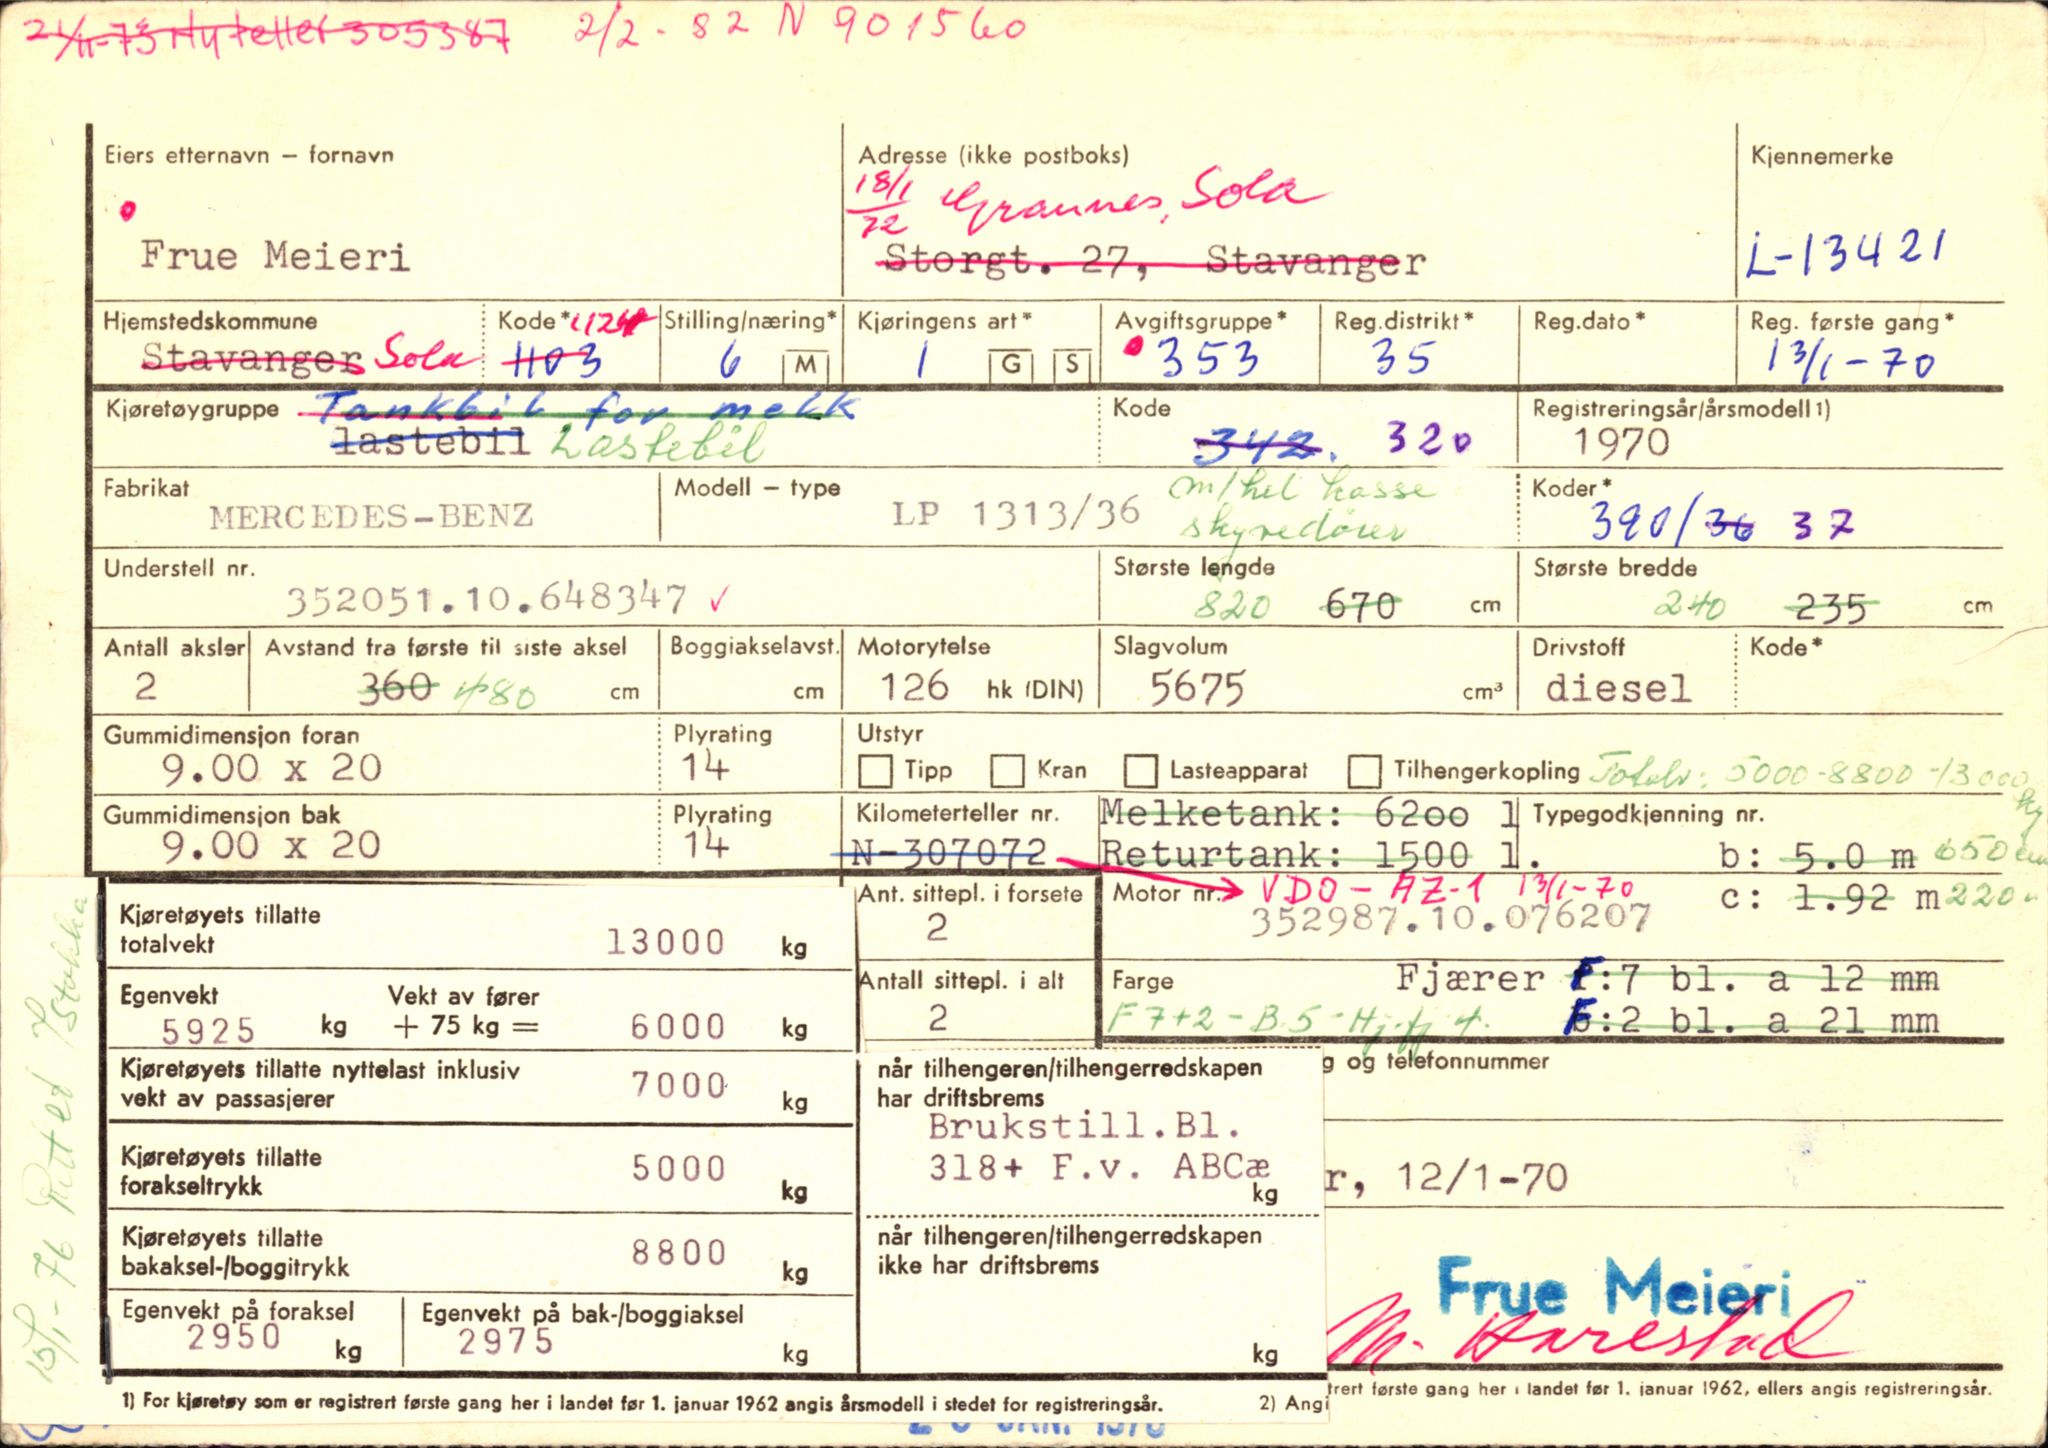 21/11-73 Ny teller 305387 2/2-82 N 901560
Eiers etternavn – fornavn
Adresse (ikke postboks)
Kjennemerke
18/1 72 Grannes, Sola
Frue Meieri
Storgt. 27, Stavanger
L-13421
Hjemstedskommune
Kode* 1124
Stilling/næring*
Kjøringens art*
Avgiftsgruppe*
Reg.distrikt*
Reg.dato*
Reg. første gang*
Stavanger Sola
1103
6 M
1 G S
353
35
13/1-70
Kjøretøygruppe Tankbil for melk
Kode
Registreringsår/årsmodell 1)
lastebil Lastebil
342. 320
1970
Fabrikat
Modell – type
m/hel kasse
Koder*
MERCEDES-BENZ
LP 1313/36
skyvedører
390/36 37
Understell nr.
Største lengde
Største bredde
352051.10.648347 ✓
820 670 cm
240 235 cm
Antall aksler
Avstand fra første til siste aksel
Boggiakselavst.
Motorytelse
Slagvolum
Drivstoff
Kode*
2
360 480 cm
cm
126 hk (DIN)
5675 cm³
diesel
Gummidimensjon foran
Plyrating
Utstyr
9.00 x 20
14
Tipp Kran Lasteapparat Tilhengerkopling Totalv: 5000-8800-13000 kg
Gummidimensjon bak
Plyrating
Kilometerteller nr.
Melketank: 6200 l
Typegodkjenning nr.
9.00 x 20
14
N-307072
Returtank: 1500 l.
b: 5.0 m 650 cm
Kjøretøyets tillatte totalvekt 13000 kg
Ant. sittepl. i forsete
2
Motor nr. VDO - AZ-1 13/1-70
352987.10.076207
c: 1.92 m 220
Egenvekt
5925 kg
Vekt av fører
+ 75 kg = 6000 kg
Antall sittepl. i alt
2
Farge
Fjærer F:7 bl. a 12 mm
F7+2 - B.5 - Hj.fj 4.
:2 bl. a 21 mm
Kjøretøyets tillatte nyttelast inklusiv
vekt av passasjerer 7000 kg
når tilhengeren/tilhengerredskapen
har driftsbrems
g og telefonnummer
Brukstill.Bl.
318+ F.v. ABCæ
kg
r, 12/1-70
Kjøretøyets tillatte
forakseltrykk 5000 kg
Kjøretøyets tillatte
bakaksel-/boggitrykk 8800 kg
når tilhengeren/tilhengerredskapen
ikke har driftsbrems
kg
Frue Meieri
M. Harestad
Egenvekt på foraksel
2950 kg
Egenvekt på bak-/boggiaksel
2975 kg
1) For kjøretøy som er registrert første gang her i landet før 1. januar 1962 angis årsmodell i stedet for registreringsår.
2) Angi
trert første gang her i landet før 1. januar 1962, ellers angis registreringsår.
JAN. 1970
15/1-76